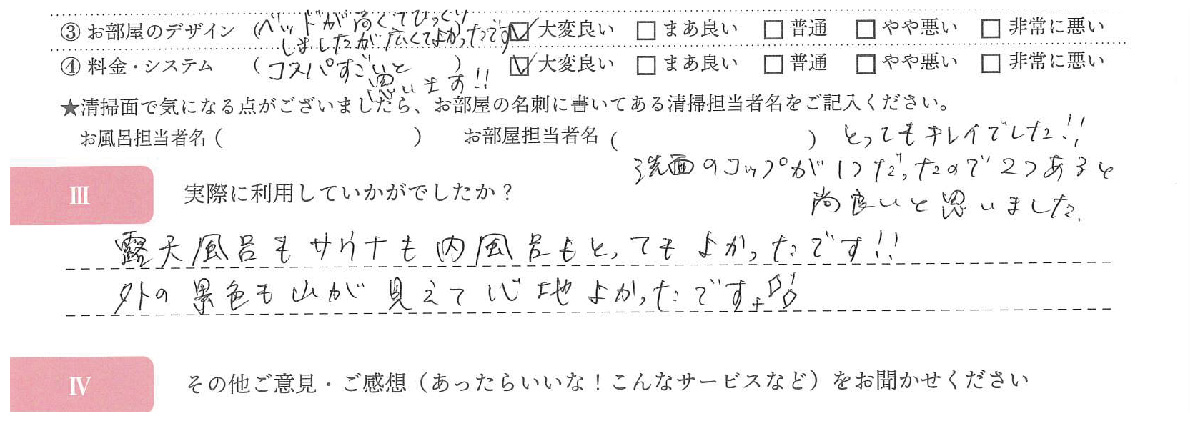 ③ お部屋のデザイン (ベッドが高くてびっくりしましたが広くてよかったです ☑大変良い □まあ良い □普通 □やや悪い □非常に悪い
④ 料金・システム (コスパすごいと思います!!) ☑大変良い □まあ良い □普通 □やや悪い □非常に悪い
★清掃面で気になる点がございましたら、お部屋の名刺に書いてある清掃担当者名をご記入ください。
お風呂担当者名 ( ) お部屋担当者名 ( ) とってもキレイでした!!
洗面のコップが1つだったので2つあると
尚良いと思いました。
III 実際に利用していかがでしたか?
露天風呂もサウナも内風呂もとってもよかったです!!
外の景色も山が見えて心地よかったですよ!!
IV その他ご意見・ご感想(あったらいいな!こんなサービスなど)をお聞かせください